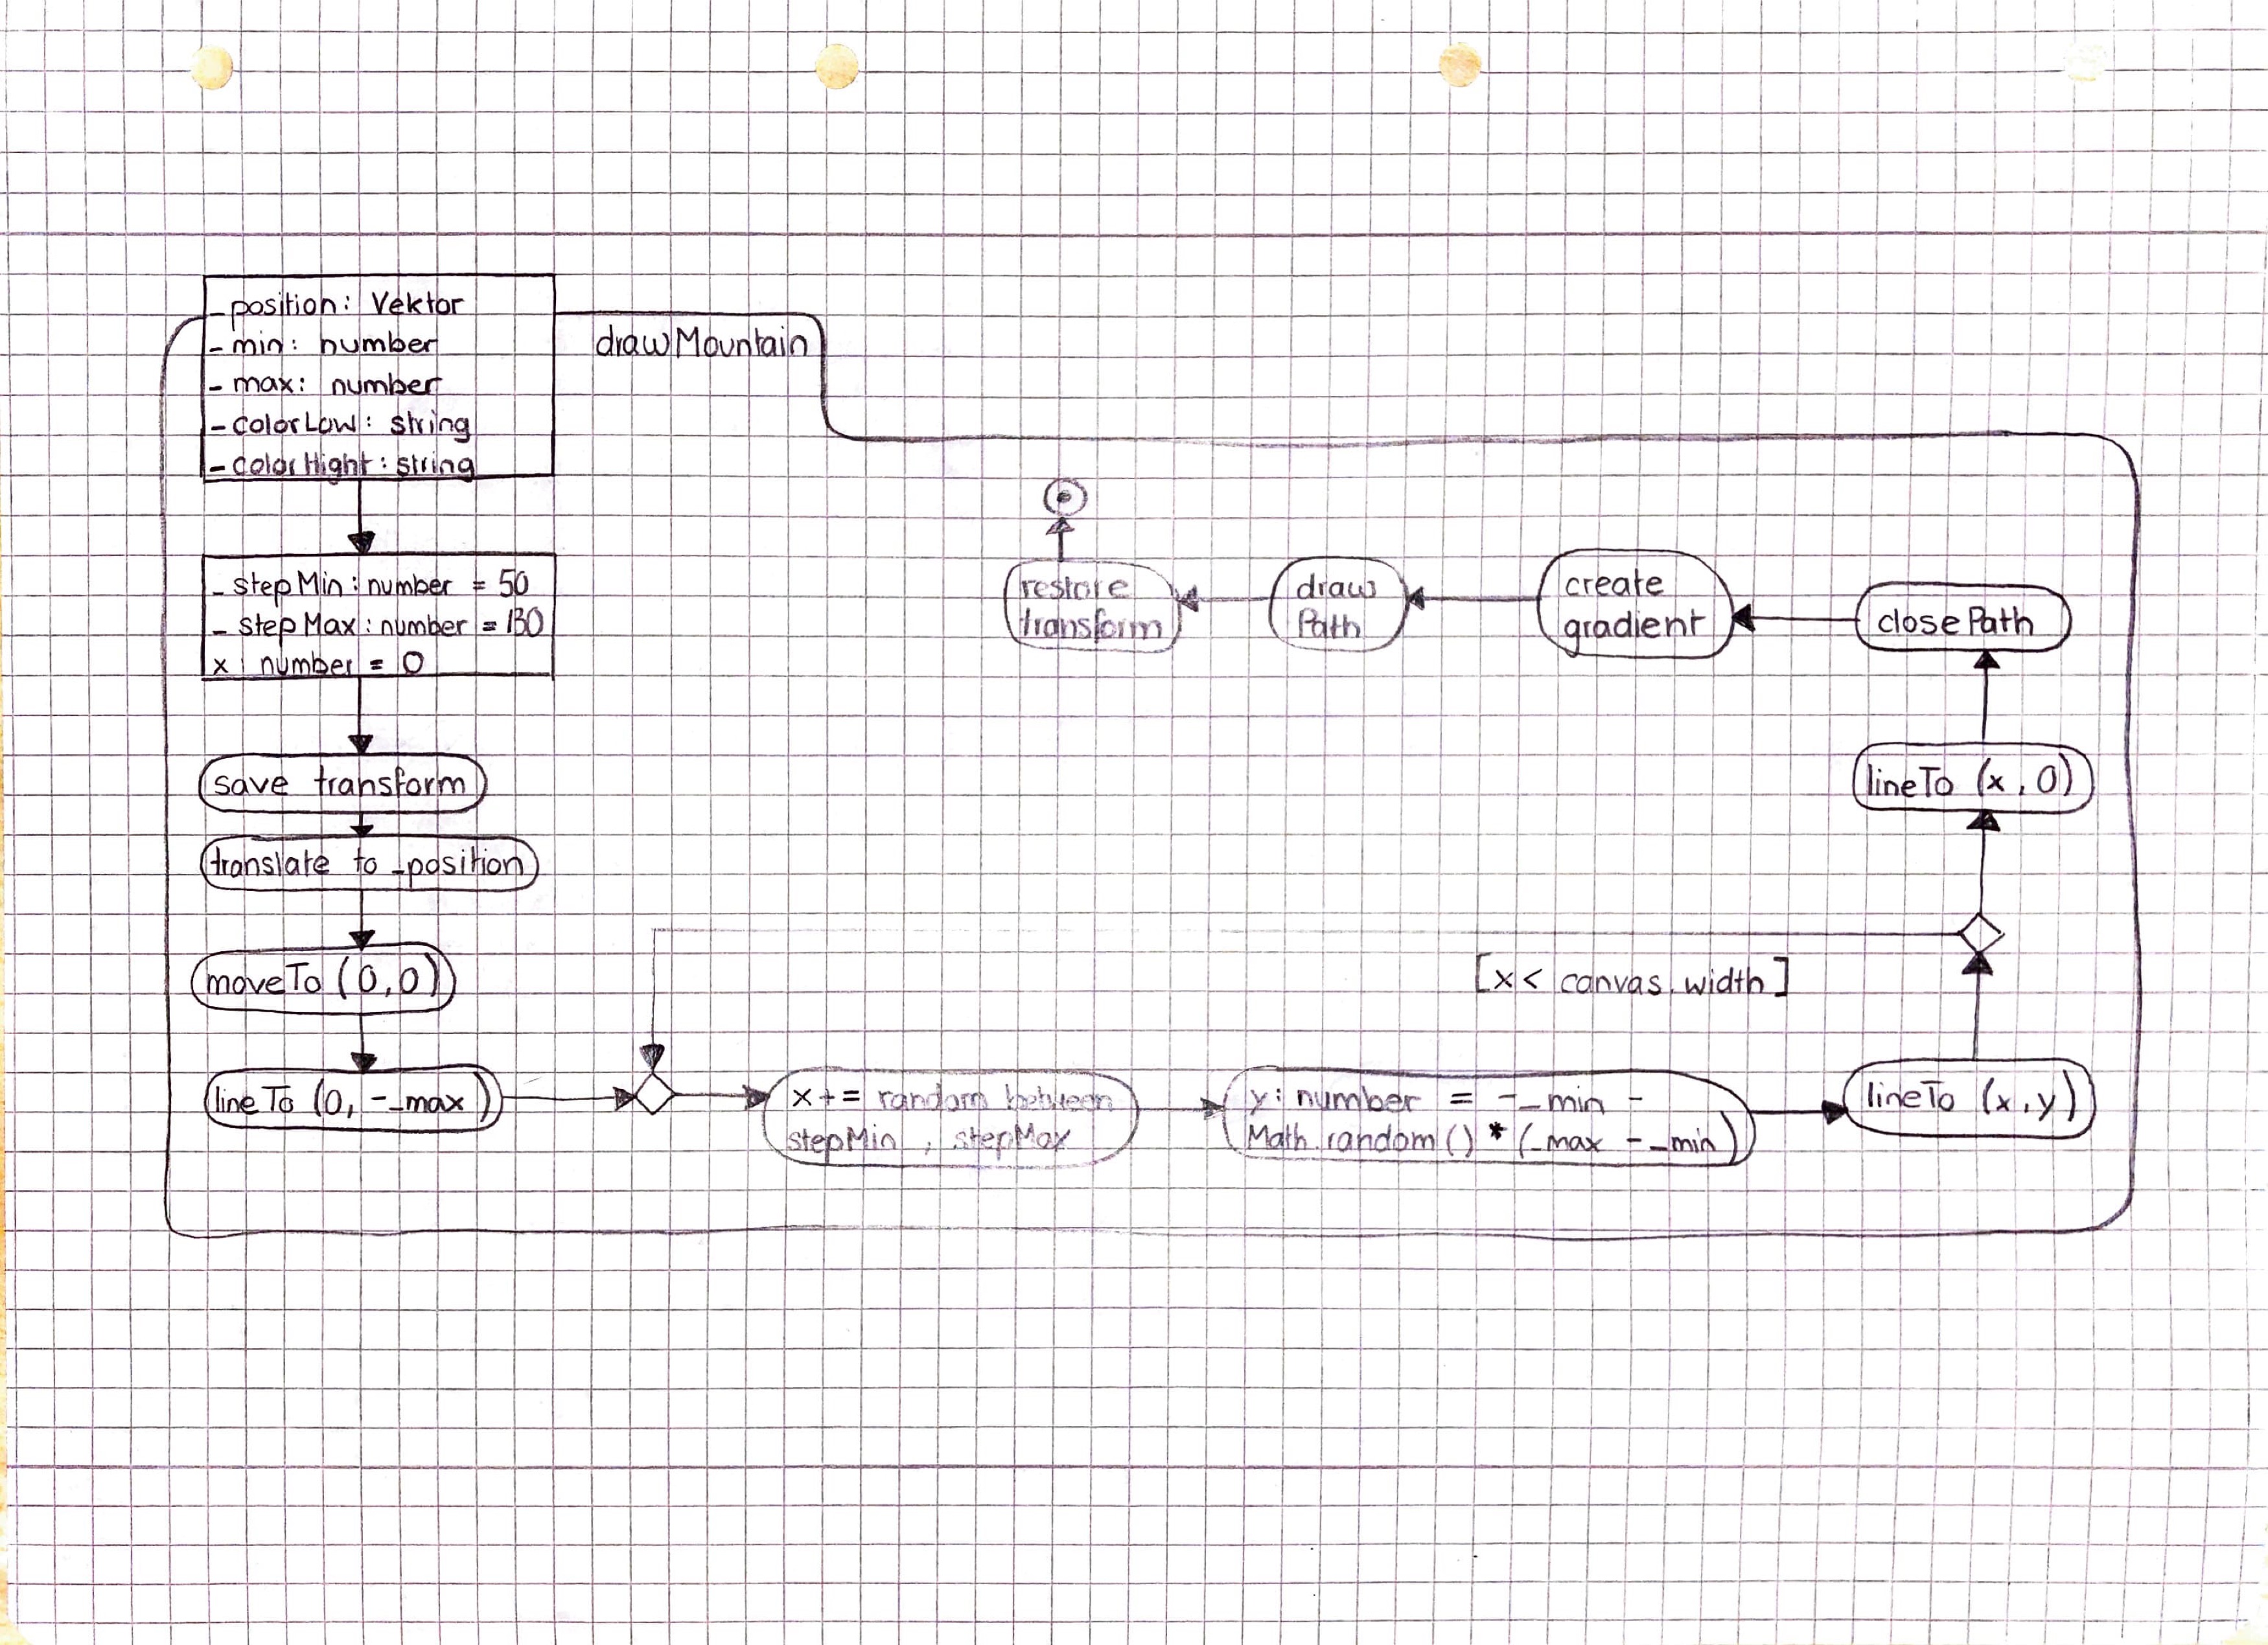 _position: Vektor
_min: number
_max: number
_colorLow: string
_colorHight: string
drawMountain
_stepMin: number = 50
_stepMax: number = 130
x: number = 0
save transform
translate to _position
moveTo (0,0)
lineTo (0, -_max)
x += random between
stepMin , stepMax
y: number = -_min -
Math.random() * (_max - _min)
lineTo (x,y)
[x < canvas.width]
lineTo (x, 0)
closePath
create
gradient
draw
Path
restore
transform